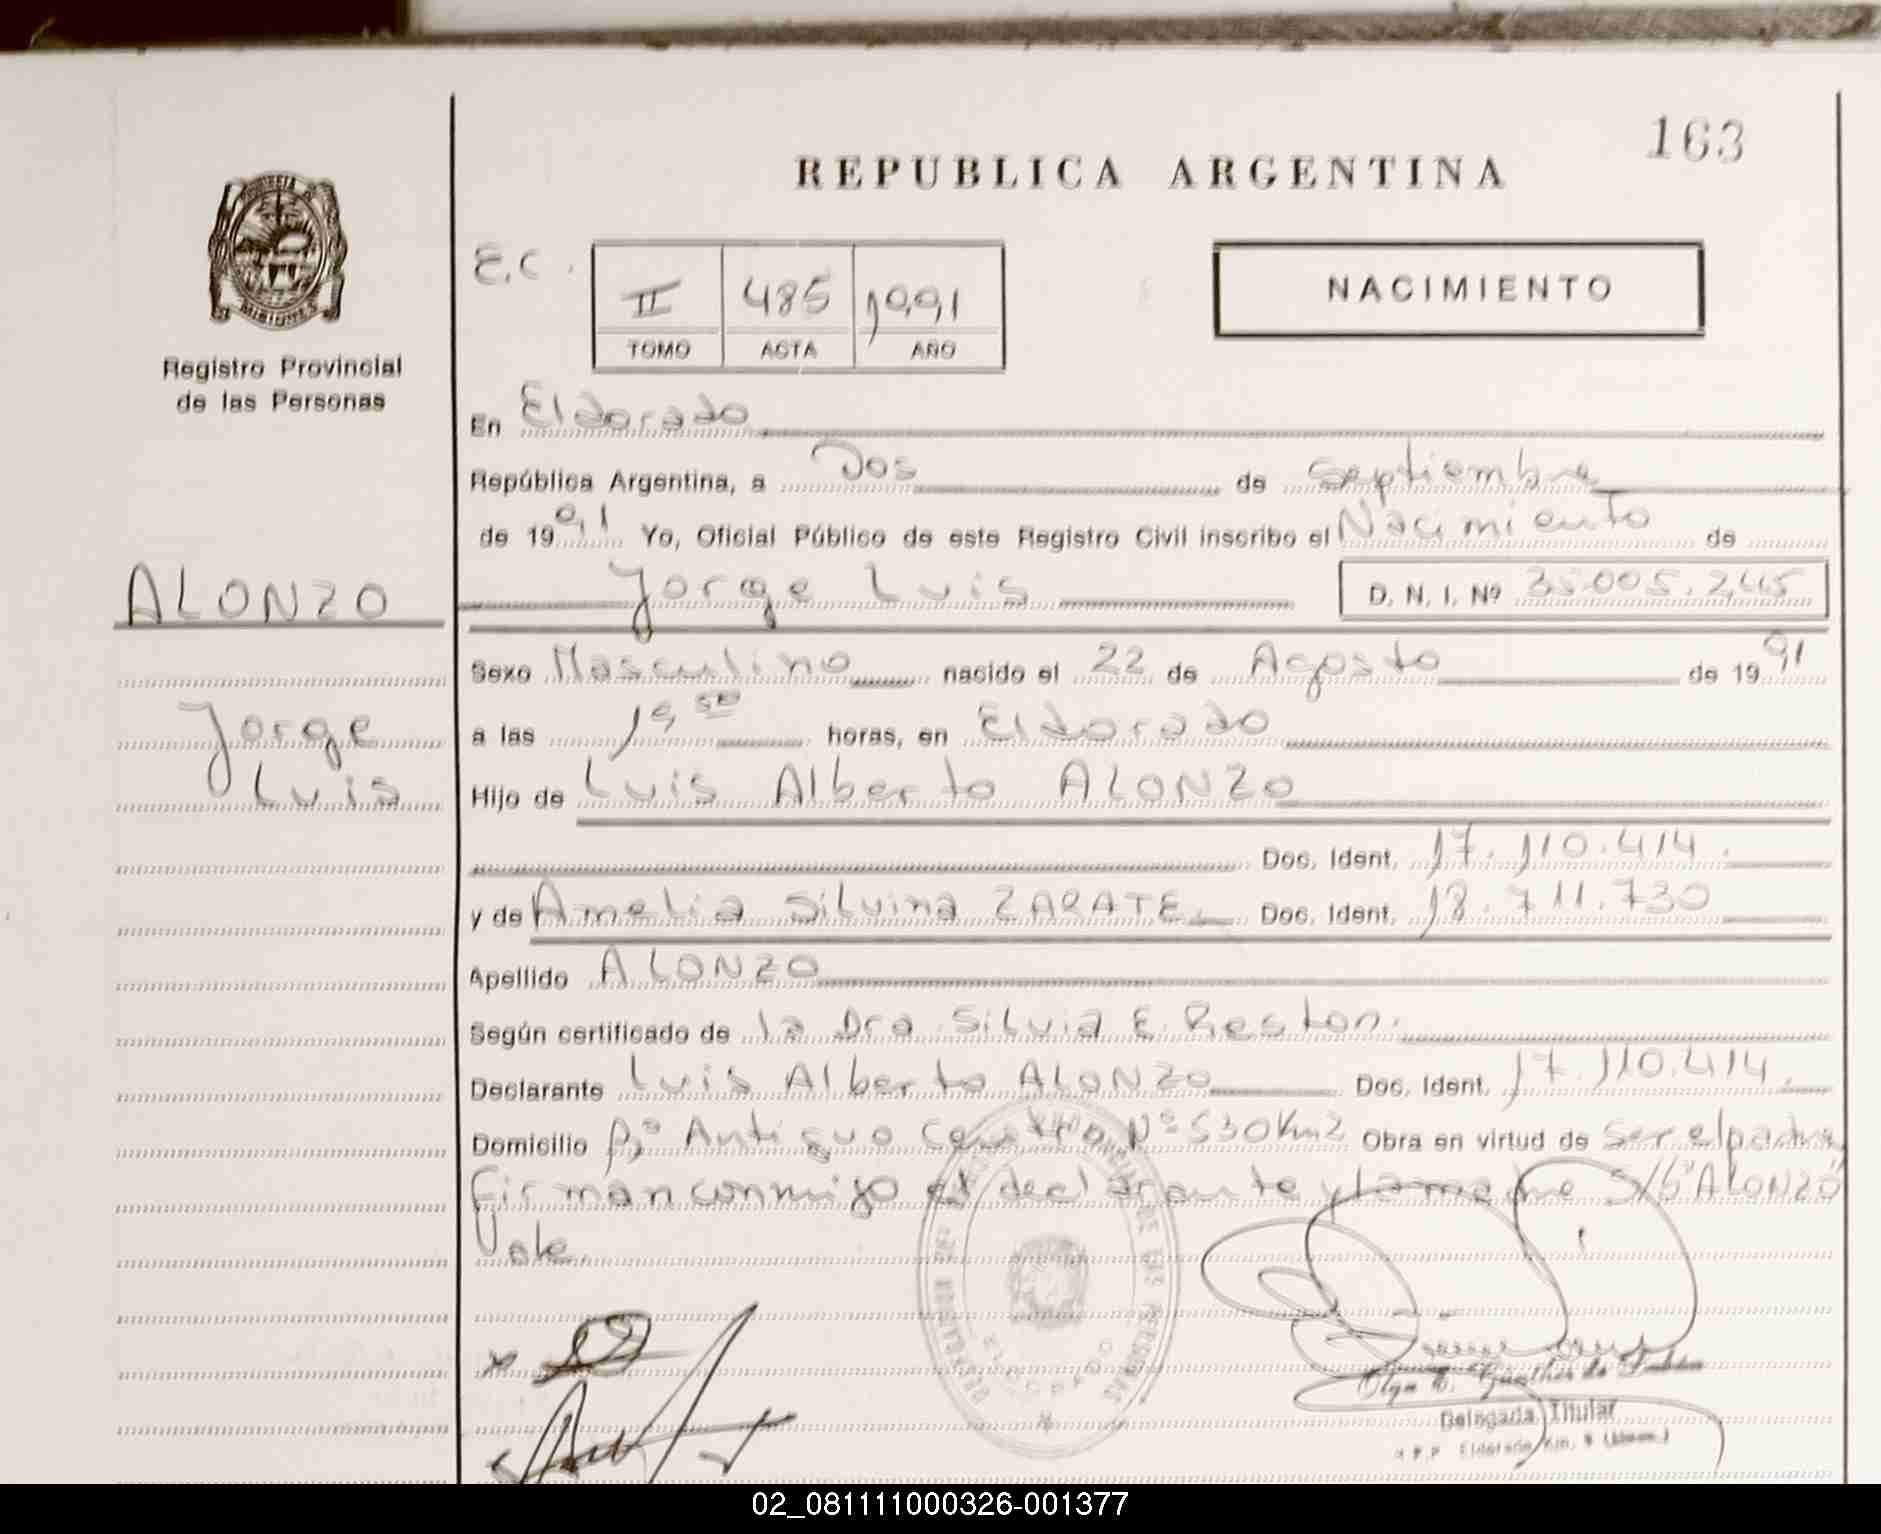 163
REPUBLICA ARGENTINA
PROVINCIA DE
MISIONES
Registro Provincial
de las Personas
E.C.
II 485 1991
TOMO ACTA AÑO
NACIMIENTO
En Eldorado
República Argentina, a Dos de Septiembre
de 1991 Yo, Oficial Público de este Registro Civil inscribo el Nacimiento de
ALONZO
Jorge Luis D. N. I. Nº 35.005.245
Sexo Masculino nacido el 22 de Agosto de 1991
Jorge
Luis
a las 19,50 horas, en Eldorado
Hijo de Luis Alberto ALONZO
Doc. Ident. 17.110.414.
y de Amelia Silvina ZARATE Doc. Ident. 18.711.730
Apellido ALONZO
Según certificado de la Dra Silvia E. Reston.
Declarante Luis Alberto ALONZO Doc. Ident. 17.110.414.
Domicilio Antiguo Nº 530 Km2 Obra en virtud de ser el padre
Firman conmigo el declarante y la madre S/b "ALONZO"
Vale.
DE LAS PERSONAS
ELDORADO
Olga E. Günther de
Delegada Titular
R.P.P. Eldorado Km. 9 (Mnes.)
02_081111000326-001377